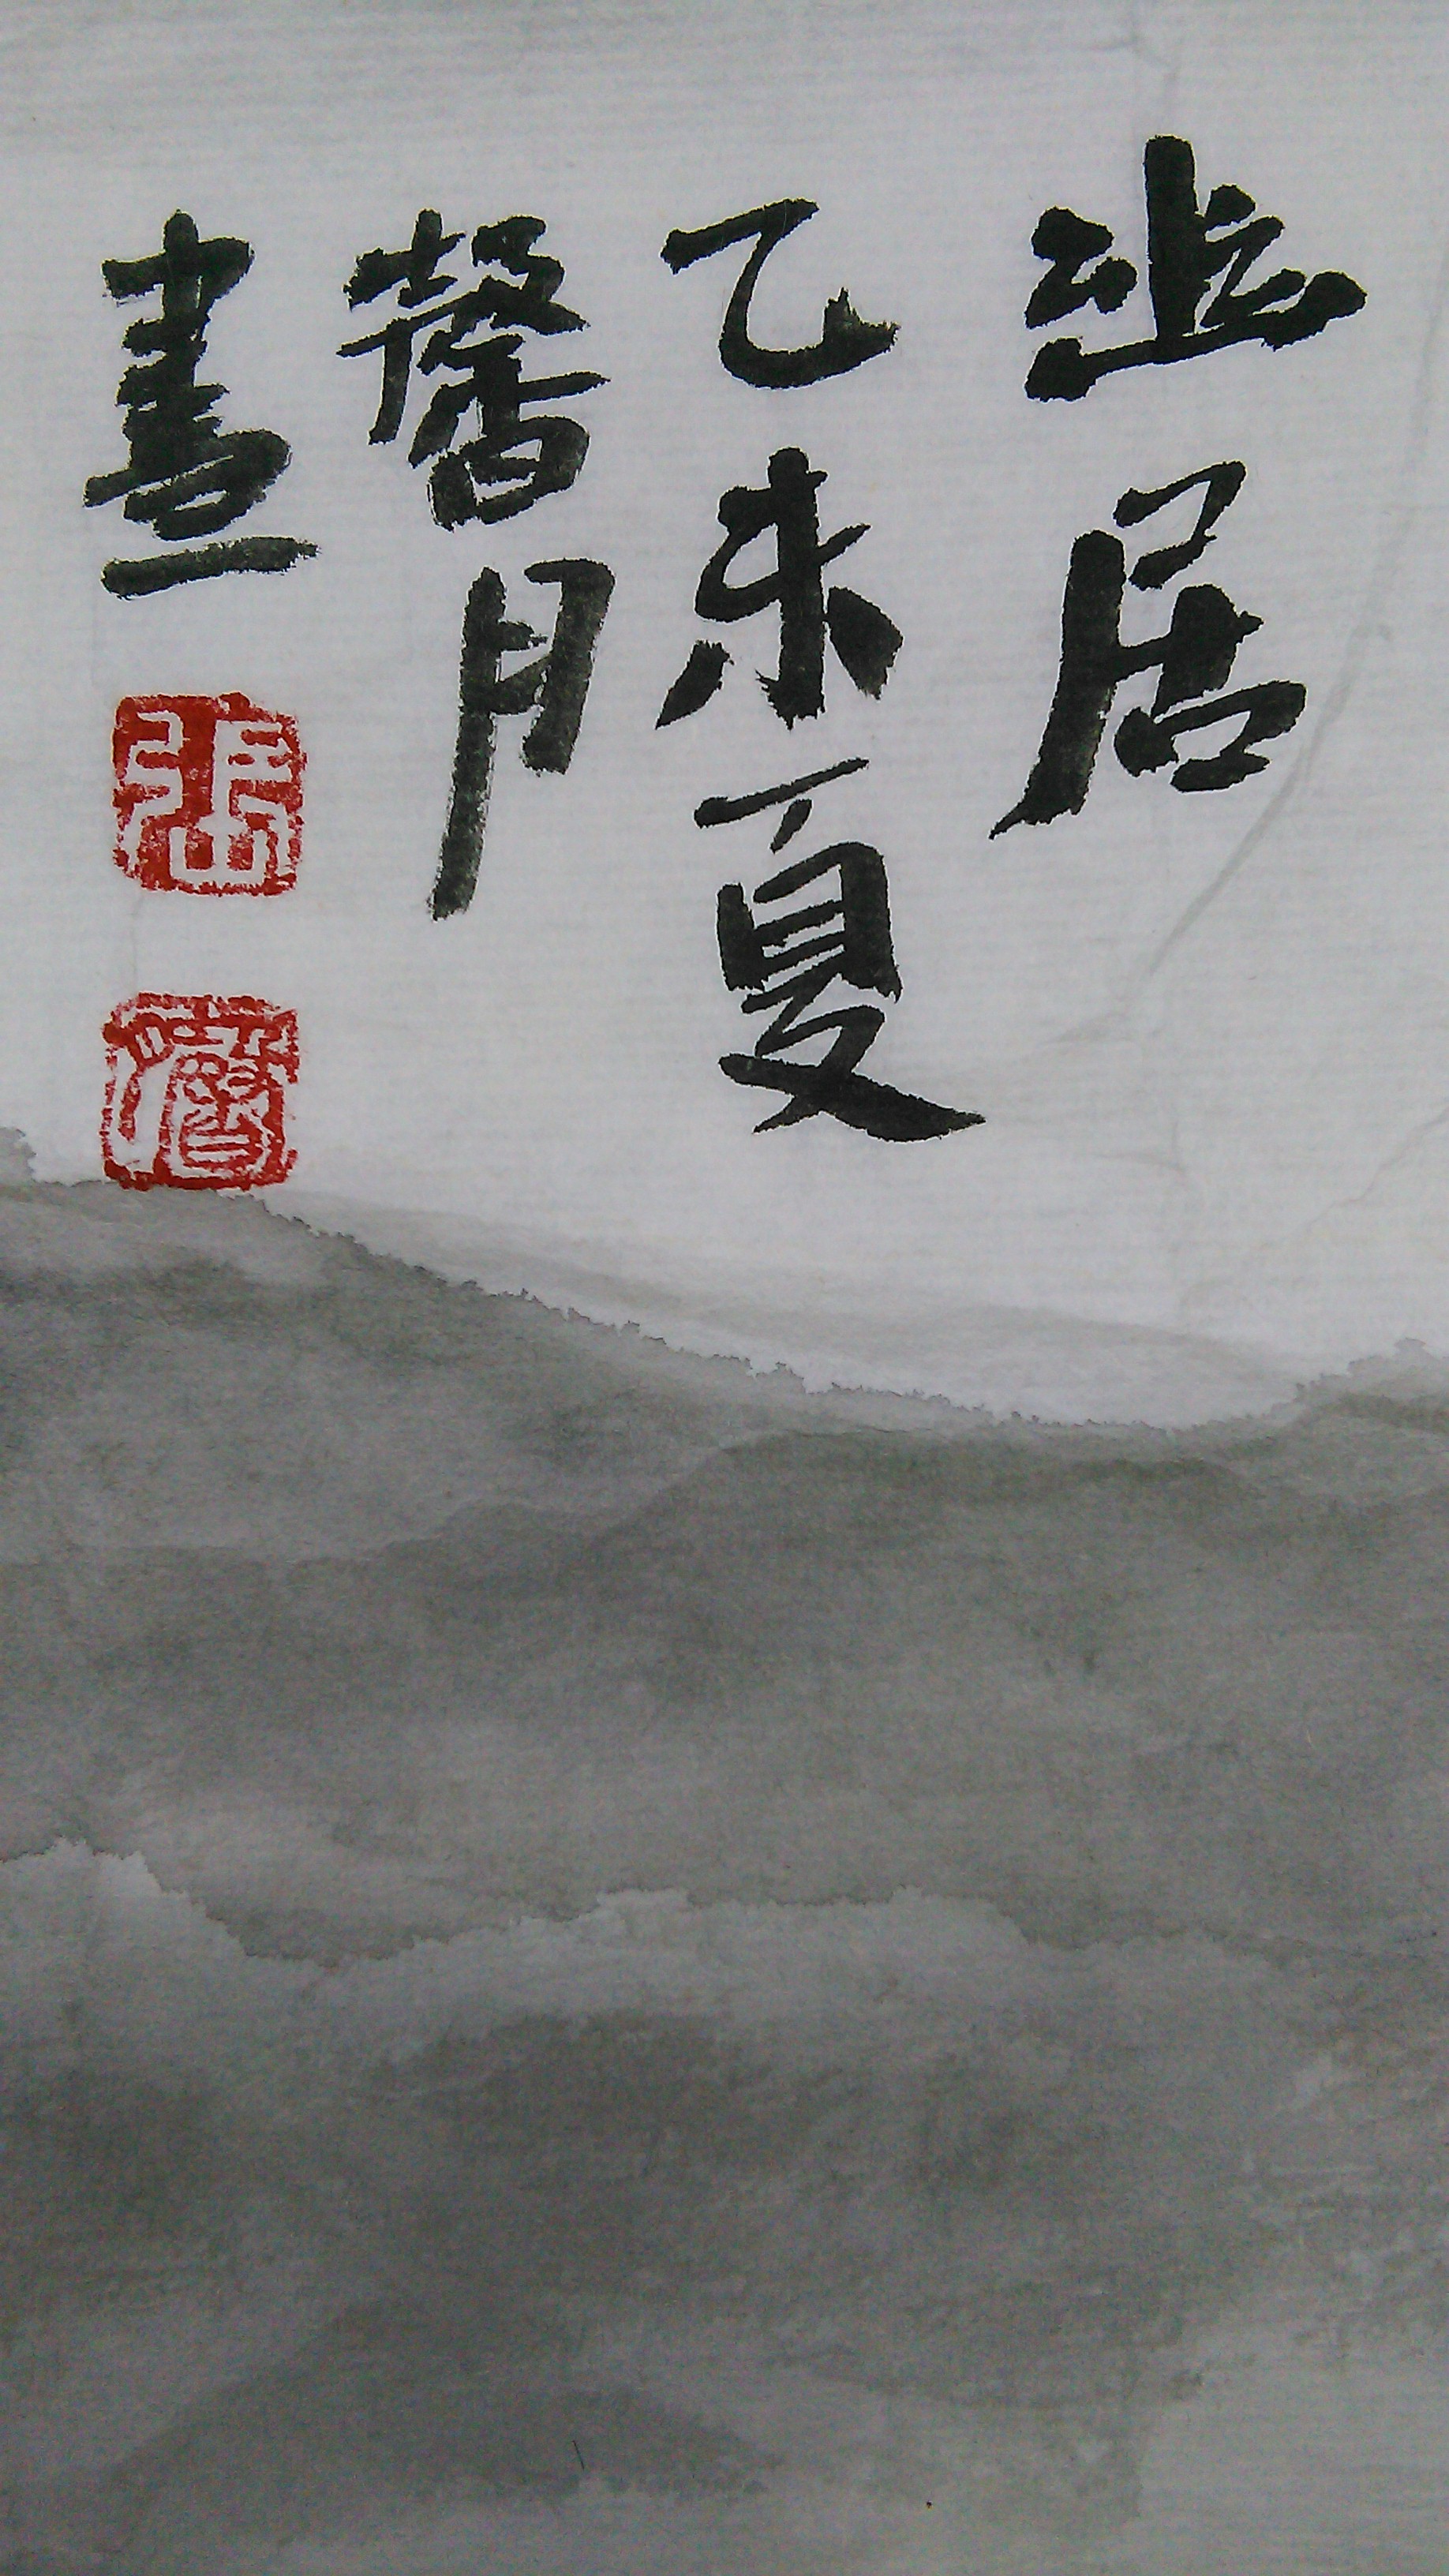 幽居
乙未夏
馨月
畫
張